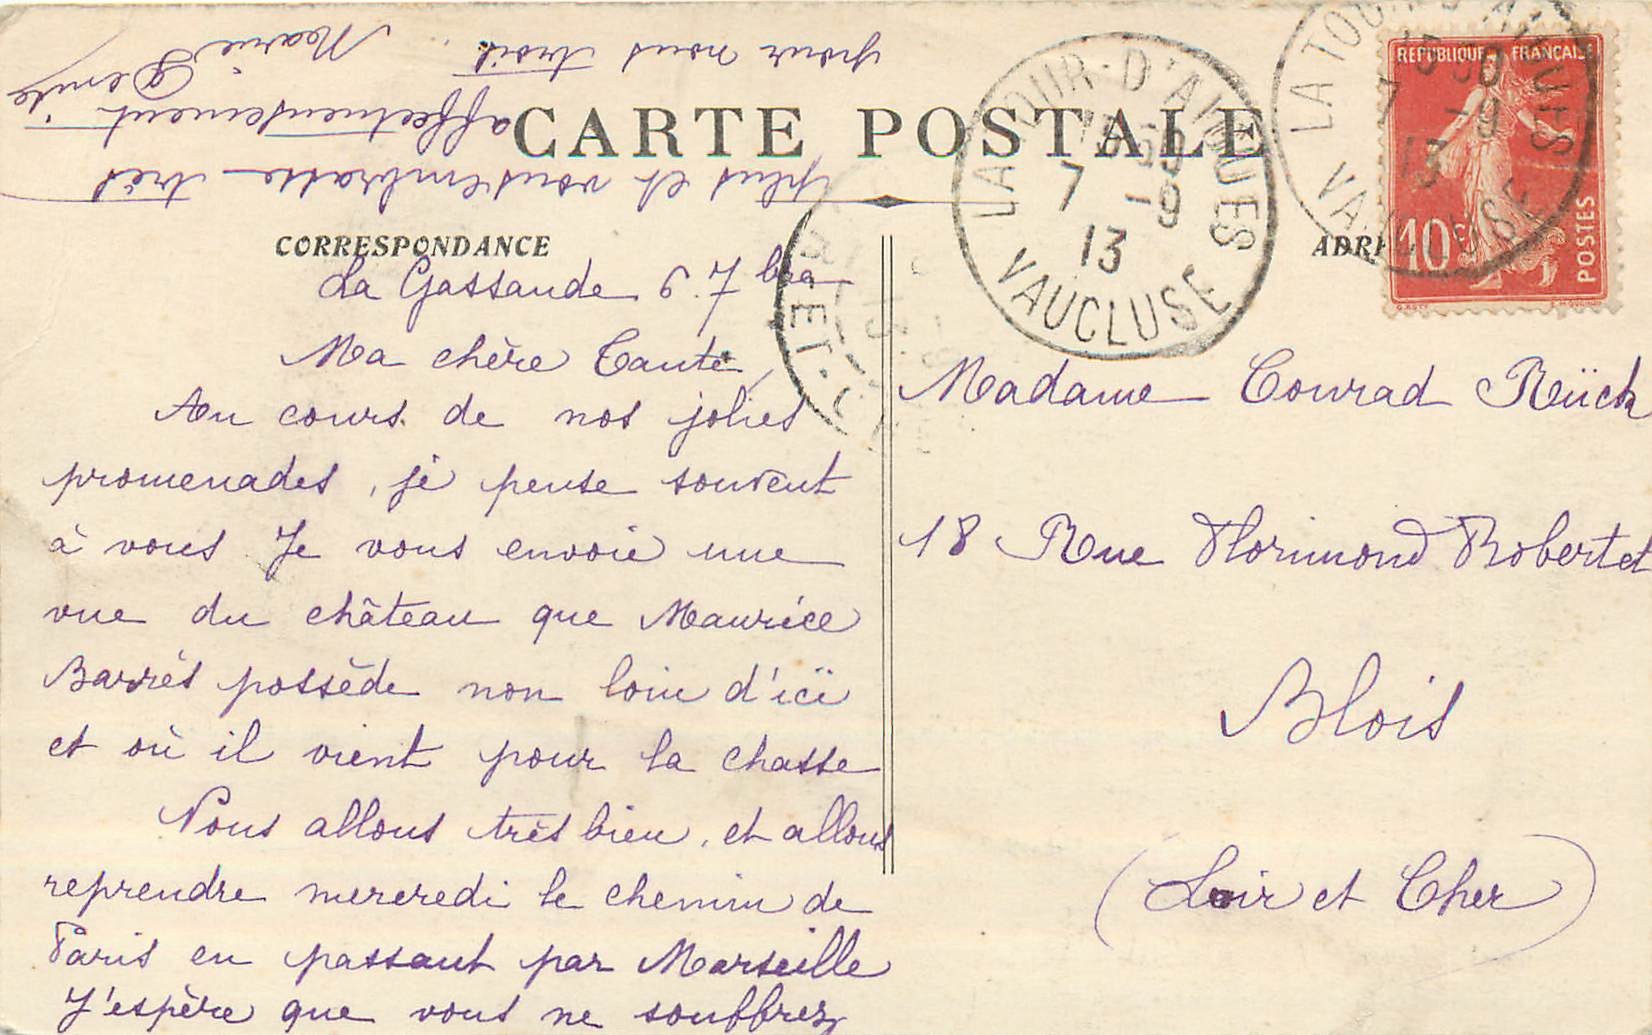 CARTE POSTALE
CORRESPONDANCE
La Gassaude 6 7bre
Ma chère Tante,
Au cours de nos jolies
promenades, je pense souvent
à vous. Je vous envoie une
vue du château que Maurice
Barrès possède non loin d'ici
et où il vient pour la chasse
Nous allons très bien, et allons
reprendre mercredi le chemin de
Paris en passant par Marseille
J'espère que vous ne souffrez
plus et vous embrasse très
affectueusement
pour nous trois.
Marie
LA TOUR-D'AIGUES
7 -9
13
VAUCLUSE
LA TOUR-D'AIGUES
7 -9
13
VAUCLUSE
REPUBLIQUE FRANÇAISE
10c
POSTES
ET-
Madame Conrad Rück
18 Rue Florimond Robertet
Blois
(Loir et Cher)